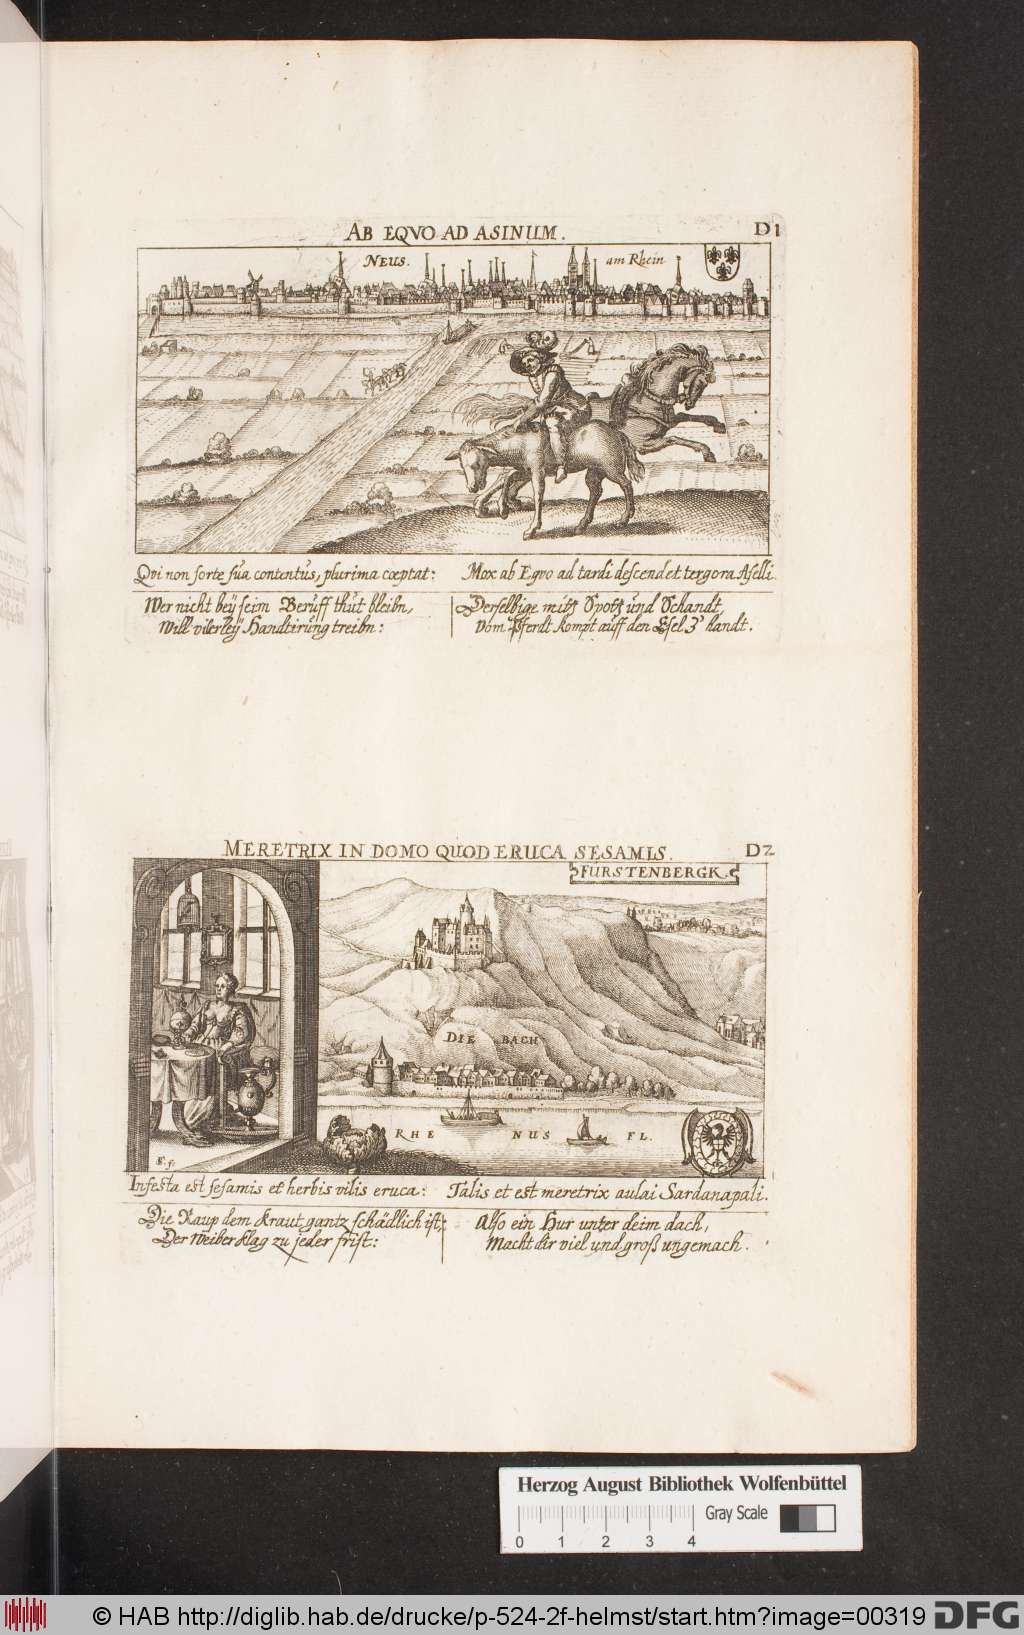 AB EQVO AD ASINUM. D1
NEUS. am Rhein
Qvi non sorte sua contentus, plurima cœptat: Mox ab Eqvo ad tardi descendet tergora Aselli.
Wer nicht beÿ seim Beruff thut bleibn,
Will vilerleÿ Handtirung treibn:
Derselbige mitt Spott und Schandt,
Vom Pferdt kompt auff den Esel Z' handt.
MERETRIX IN DOMO QUOD ERUCA SESAMIS. D2
FURSTENBERGK.
DIE BACH
RHE NUS FL.
Infesta est sesamis et herbis vilis eruca: Talis et est meretrix aulai Sardanapali.
Die Raup dem kraut gantz schädlich ist,
Der Weiber klag zu jeder frist:
Also ein Hur unter deim dach,
Macht dir viel und groß ungemach.
Herzog August Bibliothek Wolfenbüttel
Gray Scale
0 1 2 3 4
© HAB http://diglib.hab.de/drucke/p-524-2f-helmst/start.htm?image=00319 DFG